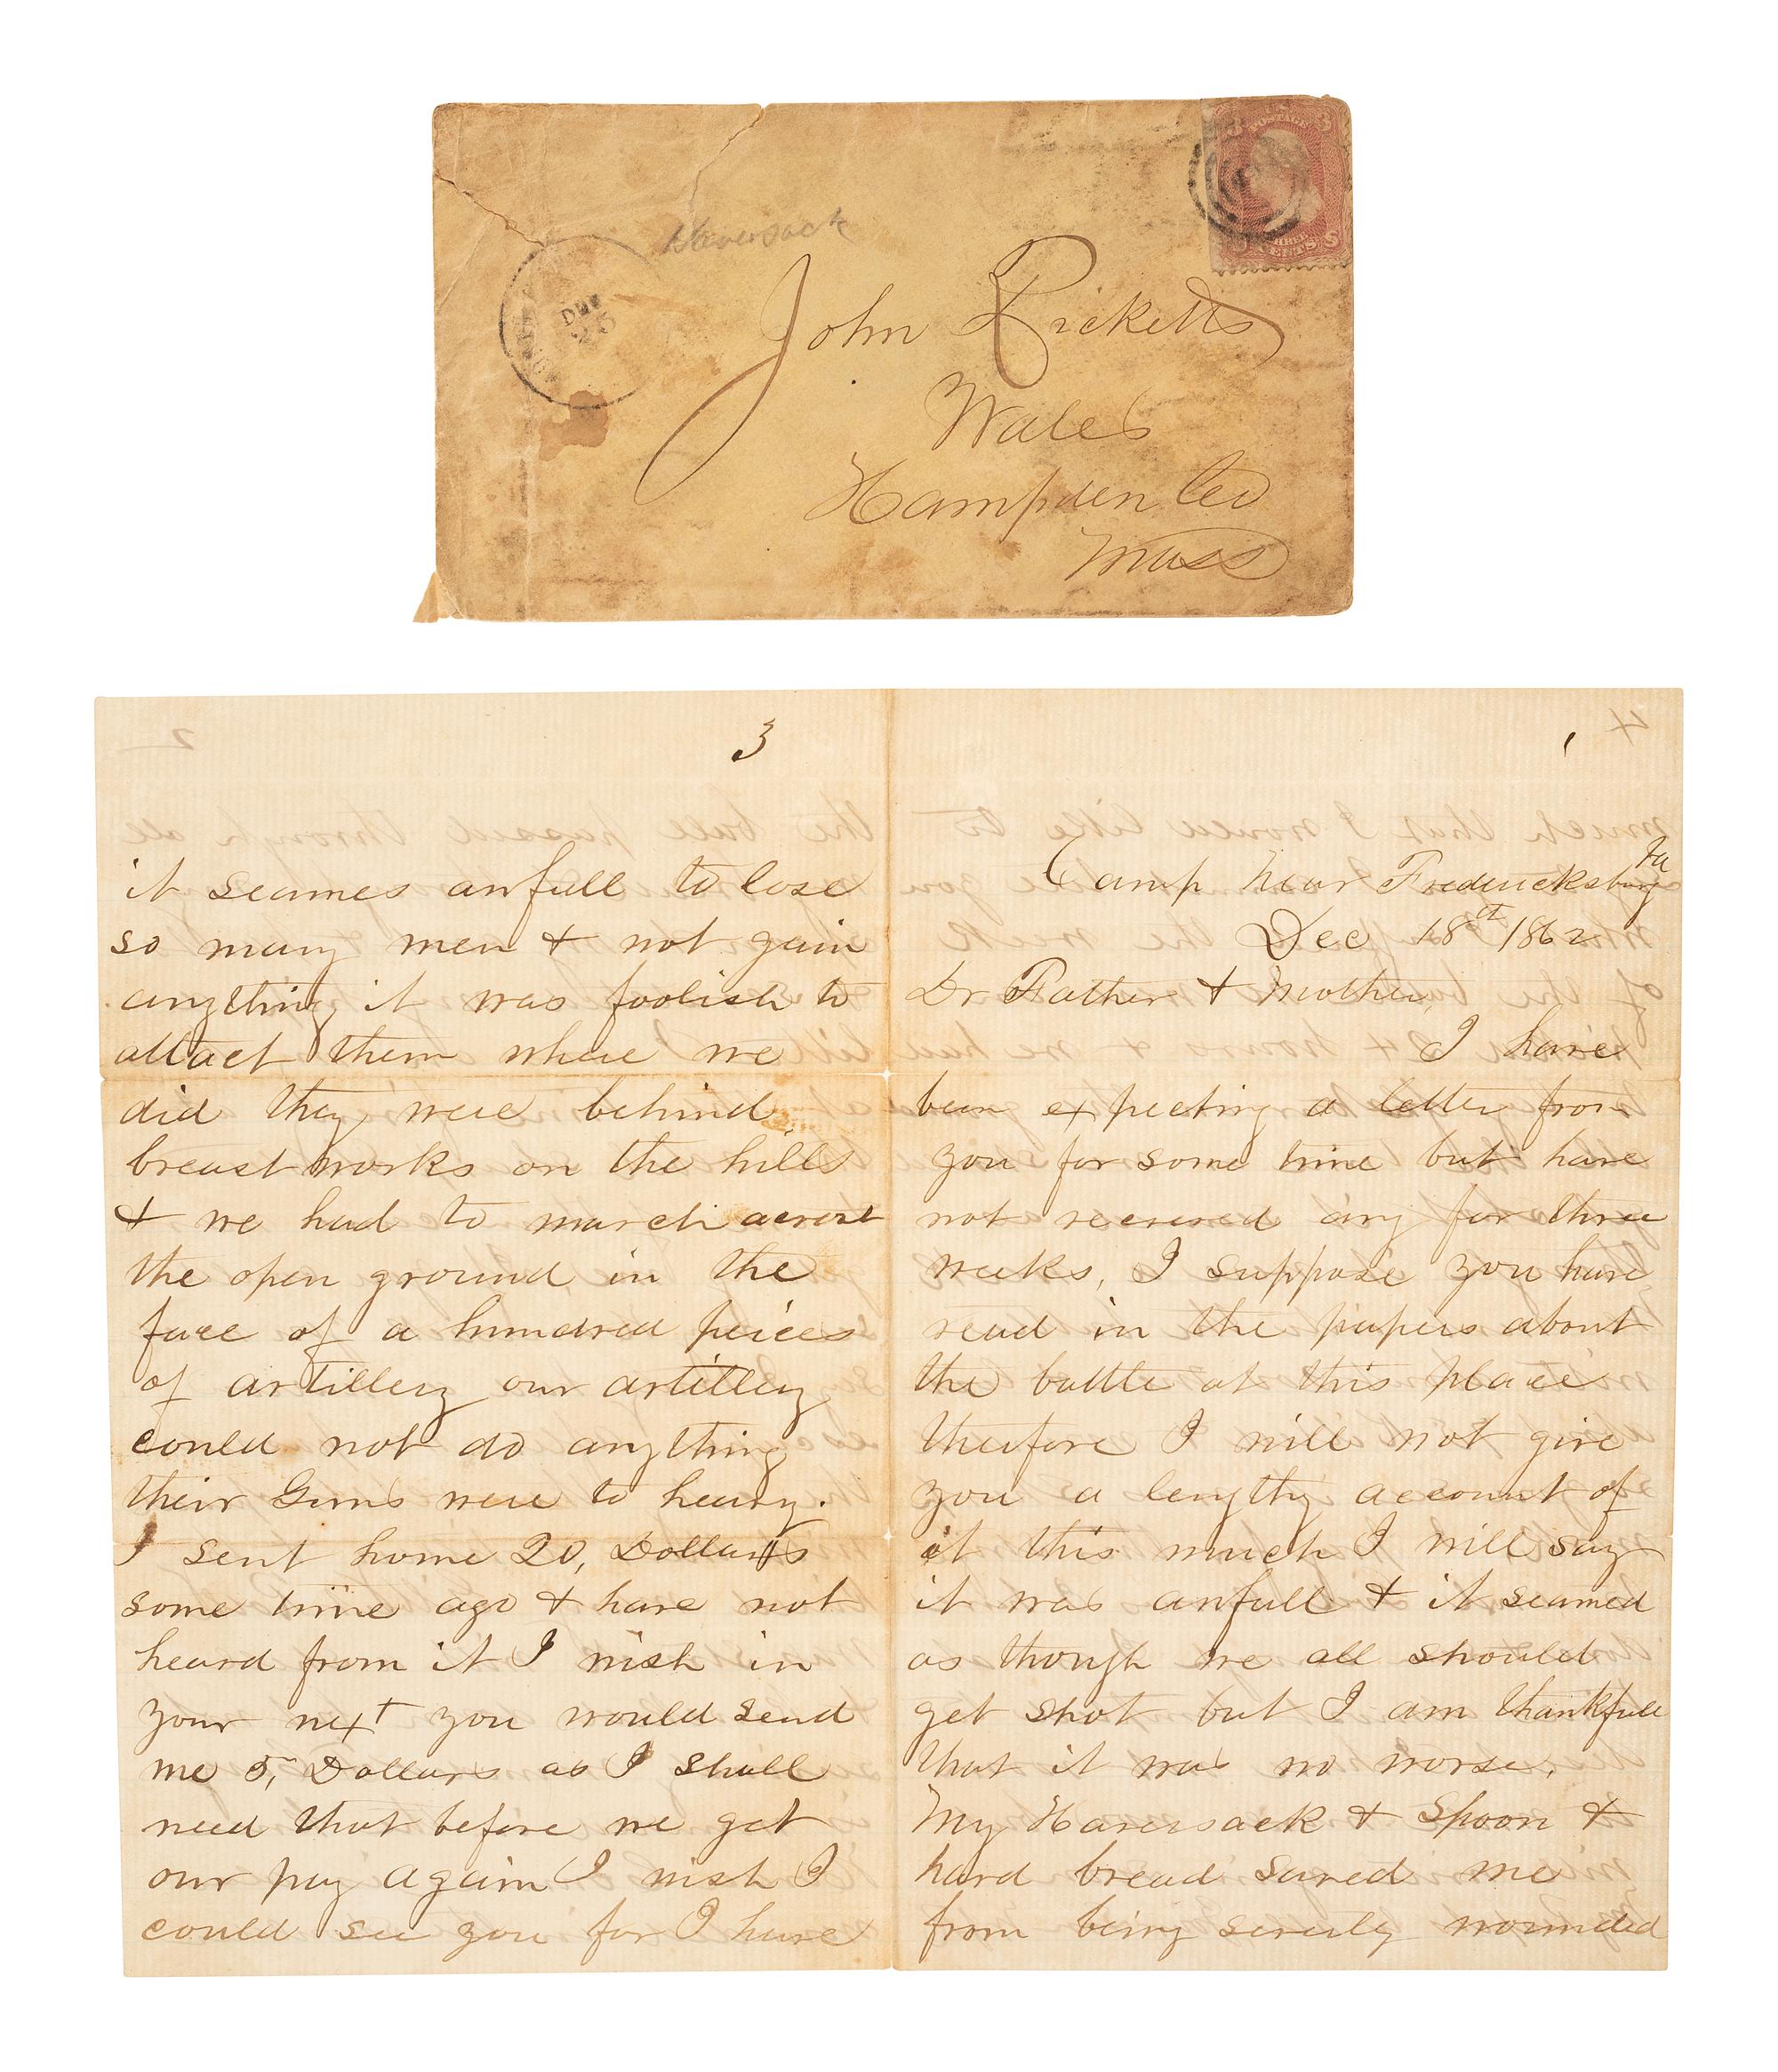 Haversack
DEC
25
3 U.S. 3
POSTAGE
THREE
CENTS
John Ricketts
Wales
Hampden Co
Mass
1
Camp near Fredericksburg Va
Dec 18th 1862
Dr Father & Mother,
I have
been expecting a letter from
you for some time but have
not received any for three
weeks, I suppose you have
read in the papers about
the battle at this place
therfore I will not give
you a lengthy account of
it this much I will say
it was awfull & it seamed
as though we all should
get shot but I am thankfull
that it was no worse.
My Haversack & Spoon &
hard bread saved me
from being severly wounded
3
it seames awfull to lose
so many men & not gain
anything it was foolish to
attact them where we
did they were behind
breast works on the hills
& we had to march acrost
the open ground in the
face of a hundred peices
of artillery our artillery
could not do anything
their Guns were to heavy.
I sent home 20, Dollars
some time ago & have not
heard from it I wish in
your next you would send
me 5, Dollars as I shall
need that before we get
our pay again I wish I
could see you for I have